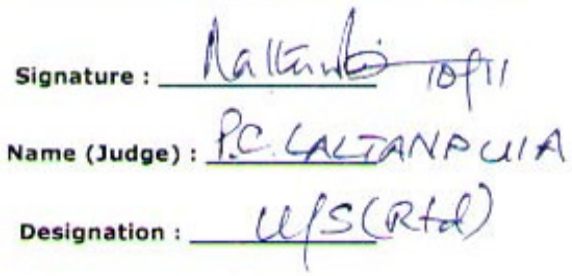 Signature : 10/11
Name (Judge) : P.C. LALTANPUIA
Designation : U/S (Rtd)